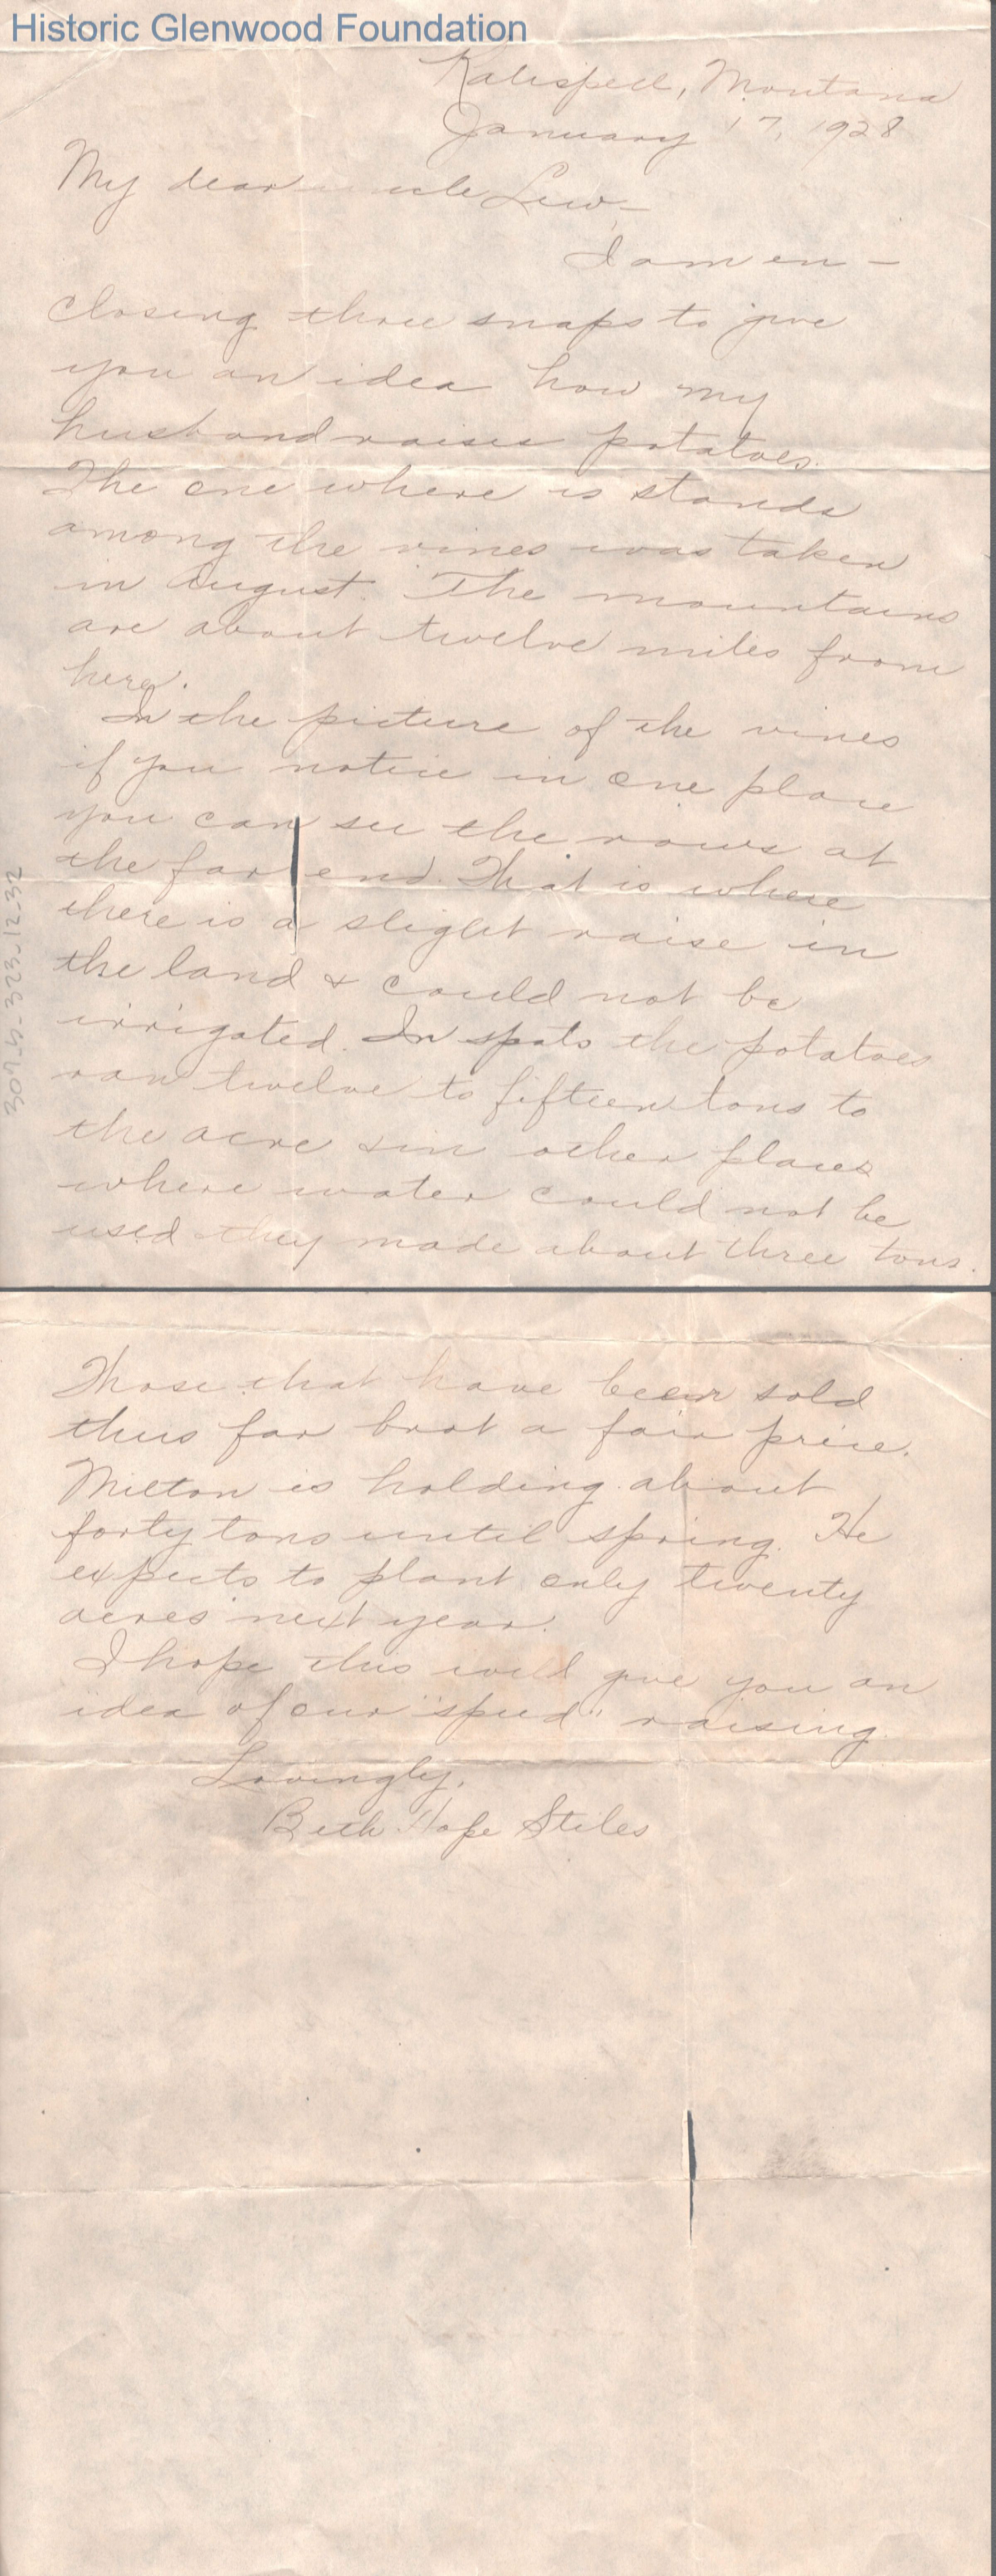 Historic Glenwood Foundation
Kalispell, Montana
January 17, 1928
My dear uncle Lew,—
I am en-
closing three snaps to give
you an idea how my
husband raises potatoes.
The one where is stands
among the vines was taken
in August. The mountains
are about twelve miles from
here.
In the picture of the vines
if you notice in one place
you can see the rows at
the far end. That is where
there is a slight raise in
the land & could not be
irrigated. In spots the potatoes
ran twelve to fifteen tons to
the acre & in other places
where water could not be
used they made about three tons.
307-5-323-12-32
Those that have been sold
thus far brot a fair price.
Milton is holding about
forty tons until spring. He
expects to plant only twenty
acres next year.
I hope this will give you an
idea of our "spud" raising.
Lovingly,
Beth Hope Stiles